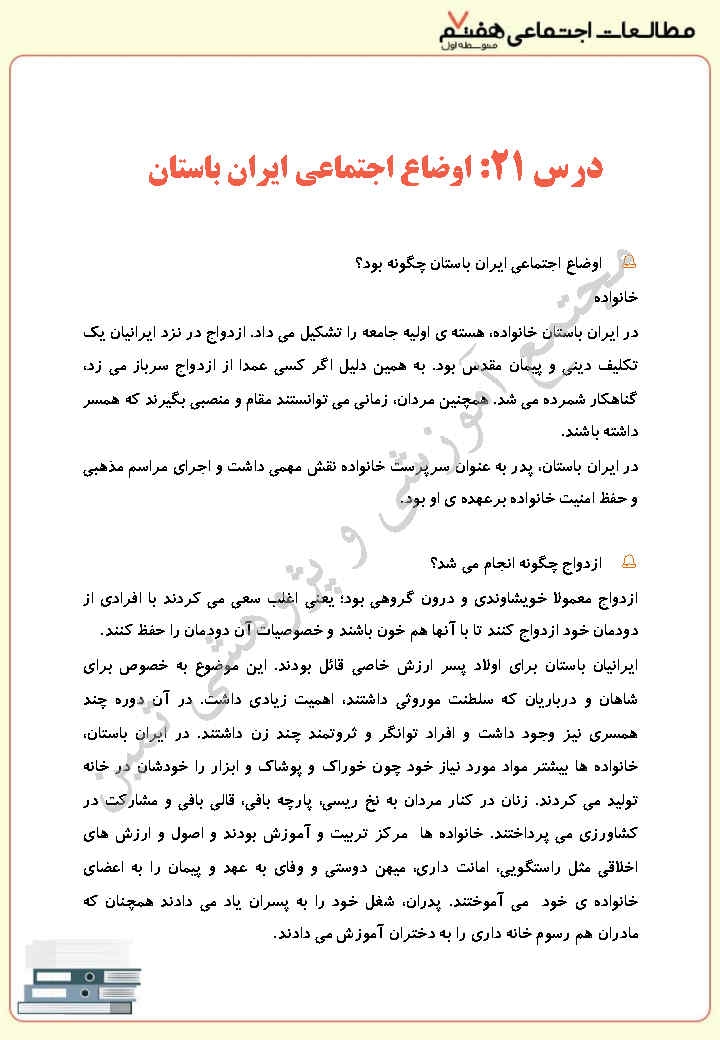 مطالعات اجتماعی هفتم
۷
متوسطه اول
درس ۲۱: اوضاع اجتماعی ایران باستان
اوضاع اجتماعی ایران باستان چگونه بود؟
خانواده
در ایران باستان خانواده، هسته ی اولیه جامعه را تشکیل می داد. ازدواج در نزد ایرانیان یک
تکلیف دینی و پیمان مقدس بود. به همین دلیل اگر کسی عمدا از ازدواج سرباز می زد،
گناهکار شمرده می شد. همچنین مردان، زمانی می توانستند مقام و منصبی بگیرند که همسر
داشته باشند.
در ایران باستان، پدر به عنوان سرپرست خانواده نقش مهمی داشت و اجرای مراسم مذهبی
و حفظ امنیت خانواده برعهده ی او بود.
ازدواج چگونه انجام می شد؟
ازدواج معمولا خویشاوندی و درون گروهی بود؛ یعنی اغلب سعی می کردند با افرادی از
دودمان خود ازدواج کنند تا با آنها هم خون باشند و خصوصیات آن دودمان را حفظ کنند.
ایرانیان باستان برای اولاد پسر ارزش خاصی قائل بودند. این موضوع به خصوص برای
شاهان و درباریان که سلطنت موروثی داشتند، اهمیت زیادی داشت. در آن دوره چند
همسری نیز وجود داشت و افراد توانگر و ثروتمند چند زن داشتند. در ایران باستان،
خانواده ها بیشتر مواد مورد نیاز خود چون خوراک و پوشاک و ابزار را خودشان در خانه
تولید می کردند. زنان در کنار مردان به نخ ریسی، پارچه بافی، قالی بافی و مشارکت در
کشاورزی می پرداختند. خانواده ها مرکز تربیت و آموزش بودند و اصول و ارزش های
اخلاقی مثل راستگویی، امانت داری، میهن دوستی و وفای به عهد و پیمان را به اعضای
خانواده ی خود می آموختند. پدران، شغل خود را به پسران یاد می دادند همچنان که
مادران هم رسوم خانه داری را به دختران آموزش می دادند.
مجتمع آموزشی و پژوهشی ثمین